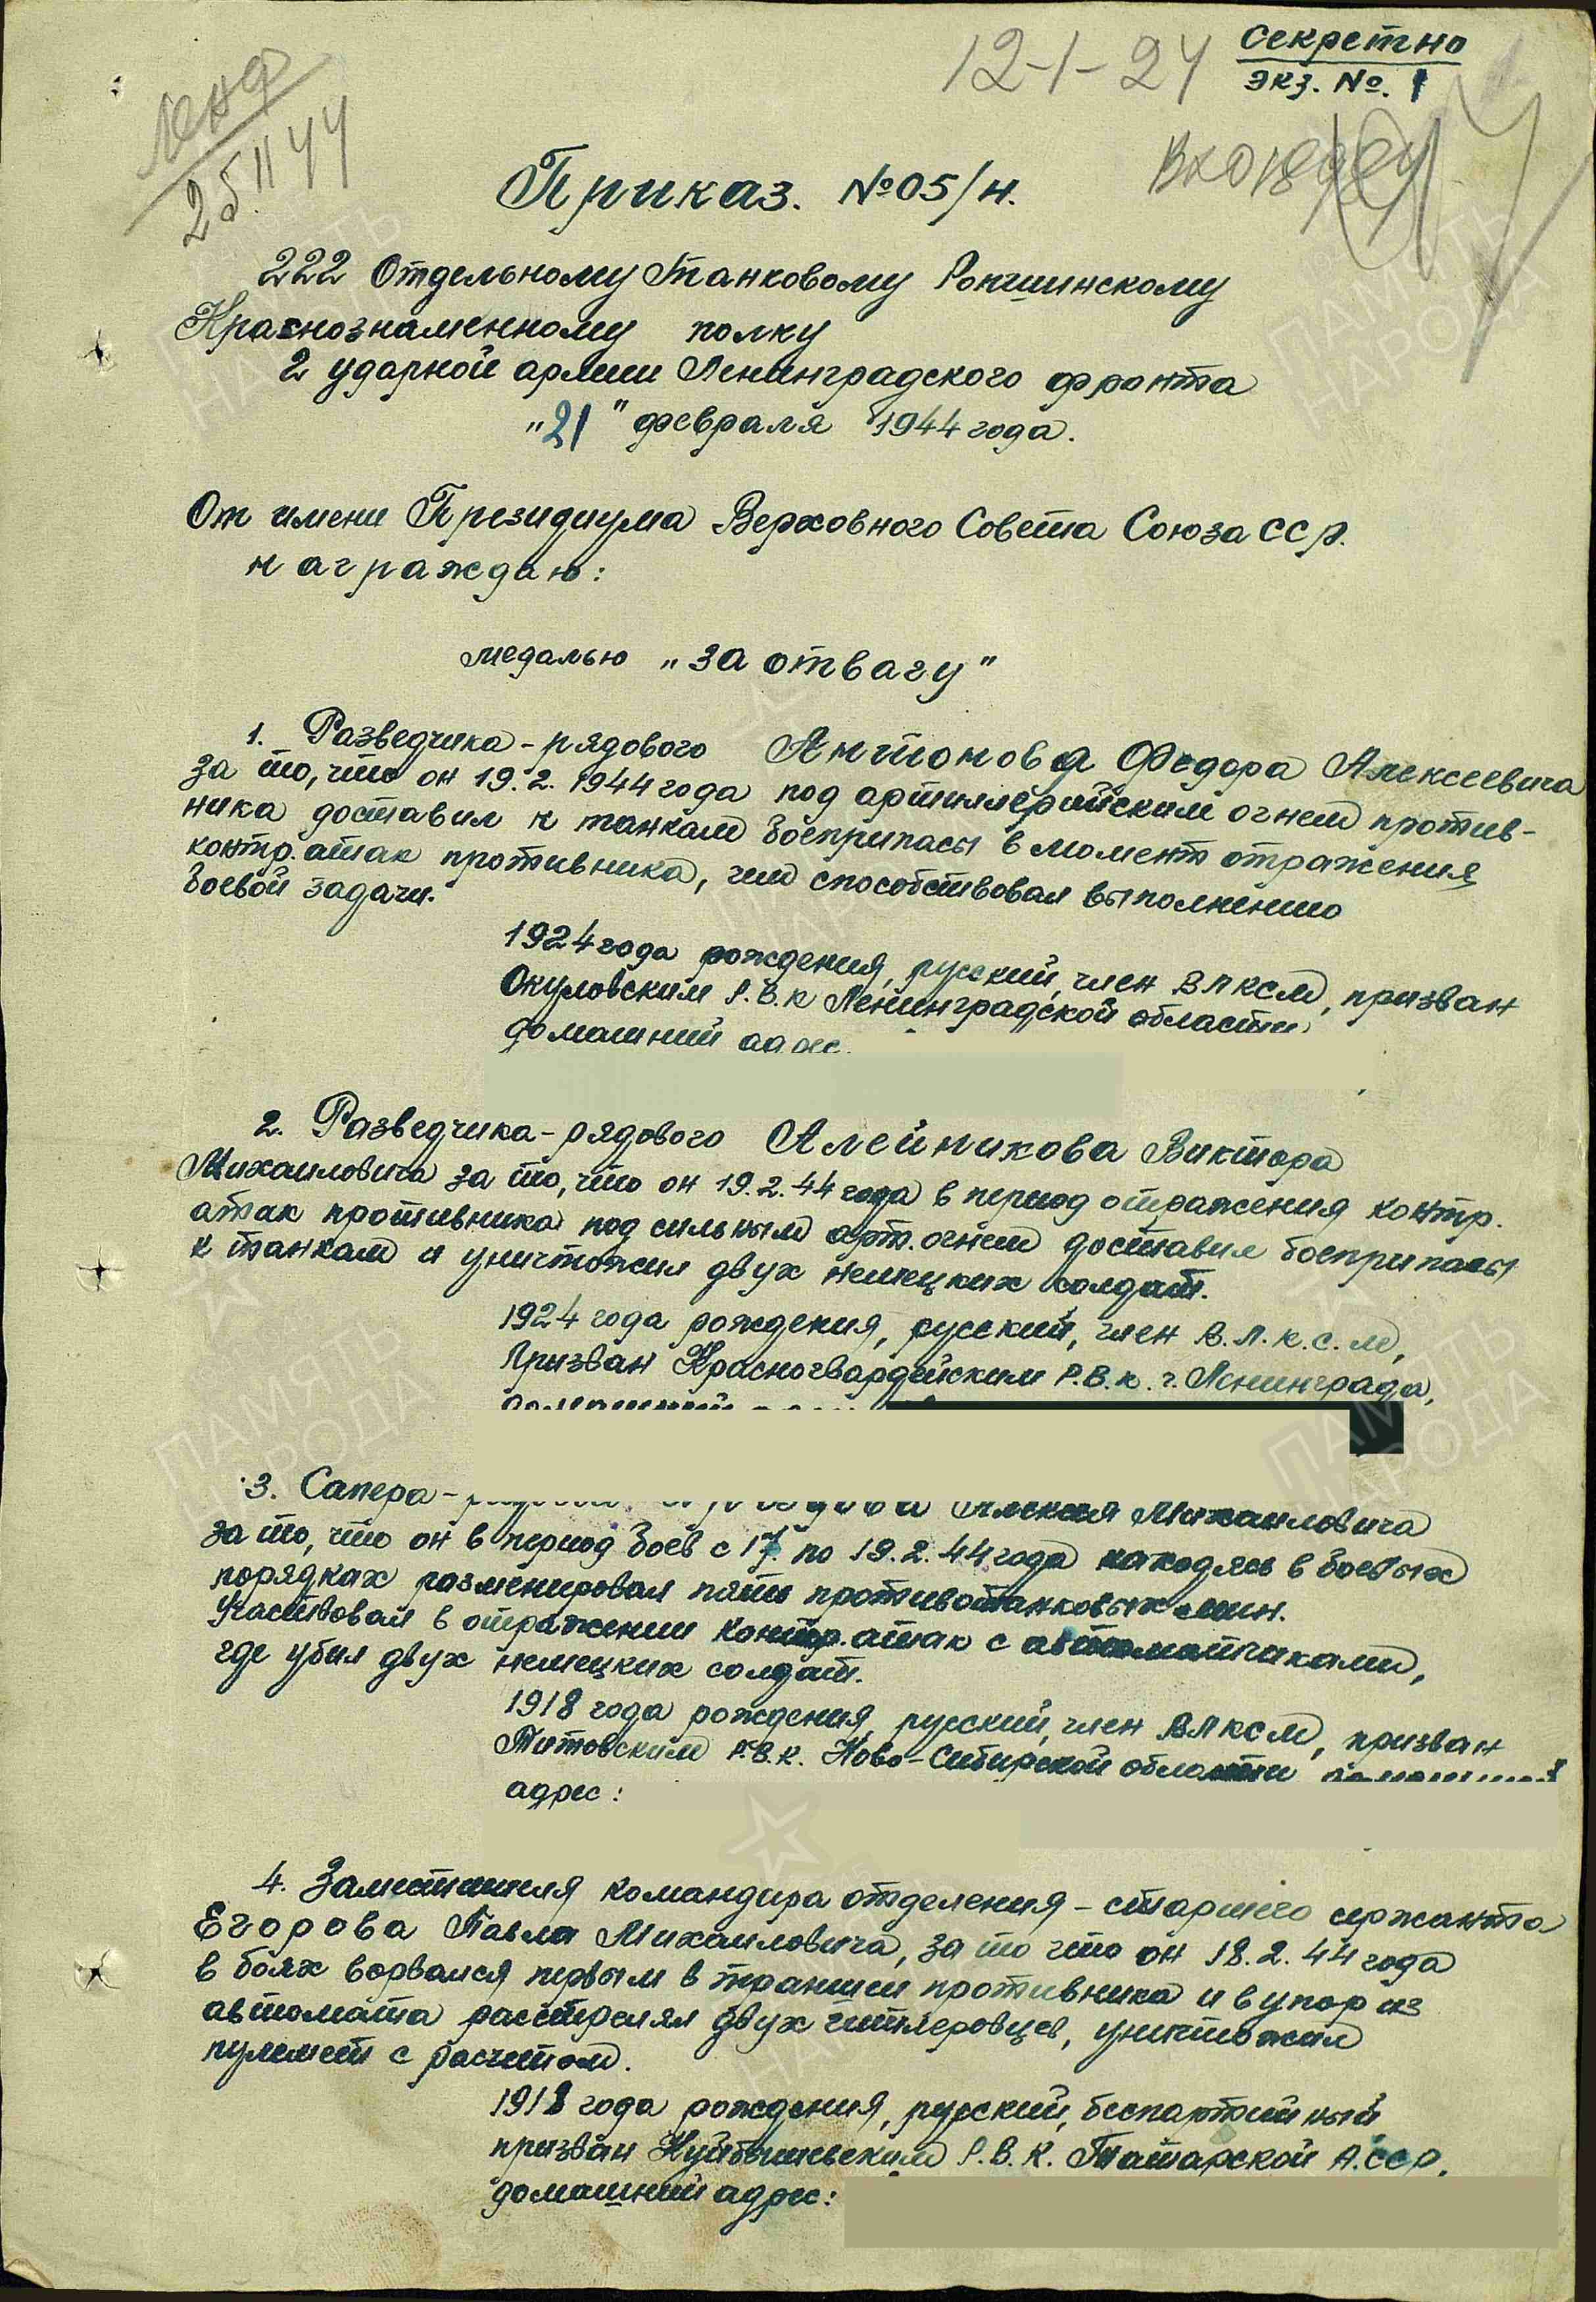 Секретно
экз. №. 1
12-1-24
Ленф
25.II 44
Приказ. №05/н.
222 Отдельному Танковому Ропшинскому
Краснознаменному полку
2 ударной армии Ленинградского фронта
„21" февраля 1944 года.
От имени Президиума Верховного Совета Союза ССР.
награждаю:
медалью „За отвагу"
1. Разведчика-рядового Антонова Федора Алексеевича
за то, что он 19.2.1944 года под артиллерийским огнем против-
ника доставил к танкам боеприпасы в момент отражения
контр.атак противника, чем способствовал выполнению
боевой задачи.
1924 года рождения, русский, член ВЛКСМ, призван
Окуловским Р.В.К Ленинградской области,
домашний адрес.
2. Разведчика-рядового Алейникова Виктора
Михаиловича за то, что он 19.2.44 года в период отражения контр.
атак противника под сильным арт.огнем доставил боеприпасы
к танкам и уничтожил двух немецких солдат.
1924 года рождения, русский, член В.Л.К.С.М,
Призван Красногвардейским Р.В.К. г. Ленинграда,
домашний
3. Сапера- Алексея Михаиловича
за то, что он в период боев с 17. по 19.2.44 года находясь в боевых
порядках разменировал пять противотанковых мин.
Участвовал в отражении контр.атак с автоматчиками,
где убил двух немецких солдат.
1918 года рождения, русский, член ВЛКСМ, призван
Титовским Р.В.К. Ново-Сибирской области домашний
адрес:
4. Заместителя командира отделения-старшего сержанта
Егорова Павла Михаиловича, за то что он 18.2.44 года
в боях ворвался первым в траншеи противника и в упор из
автомата расстрелял двух гитлеровцев, уничтожил
пулемет с расчетом.
1918 года рождения, русский, беспартийный
призван Куйбышевским Р.В.К. Татарской А.ССР,
домашний адрес:
ПАМЯТЬ
НАРОДА